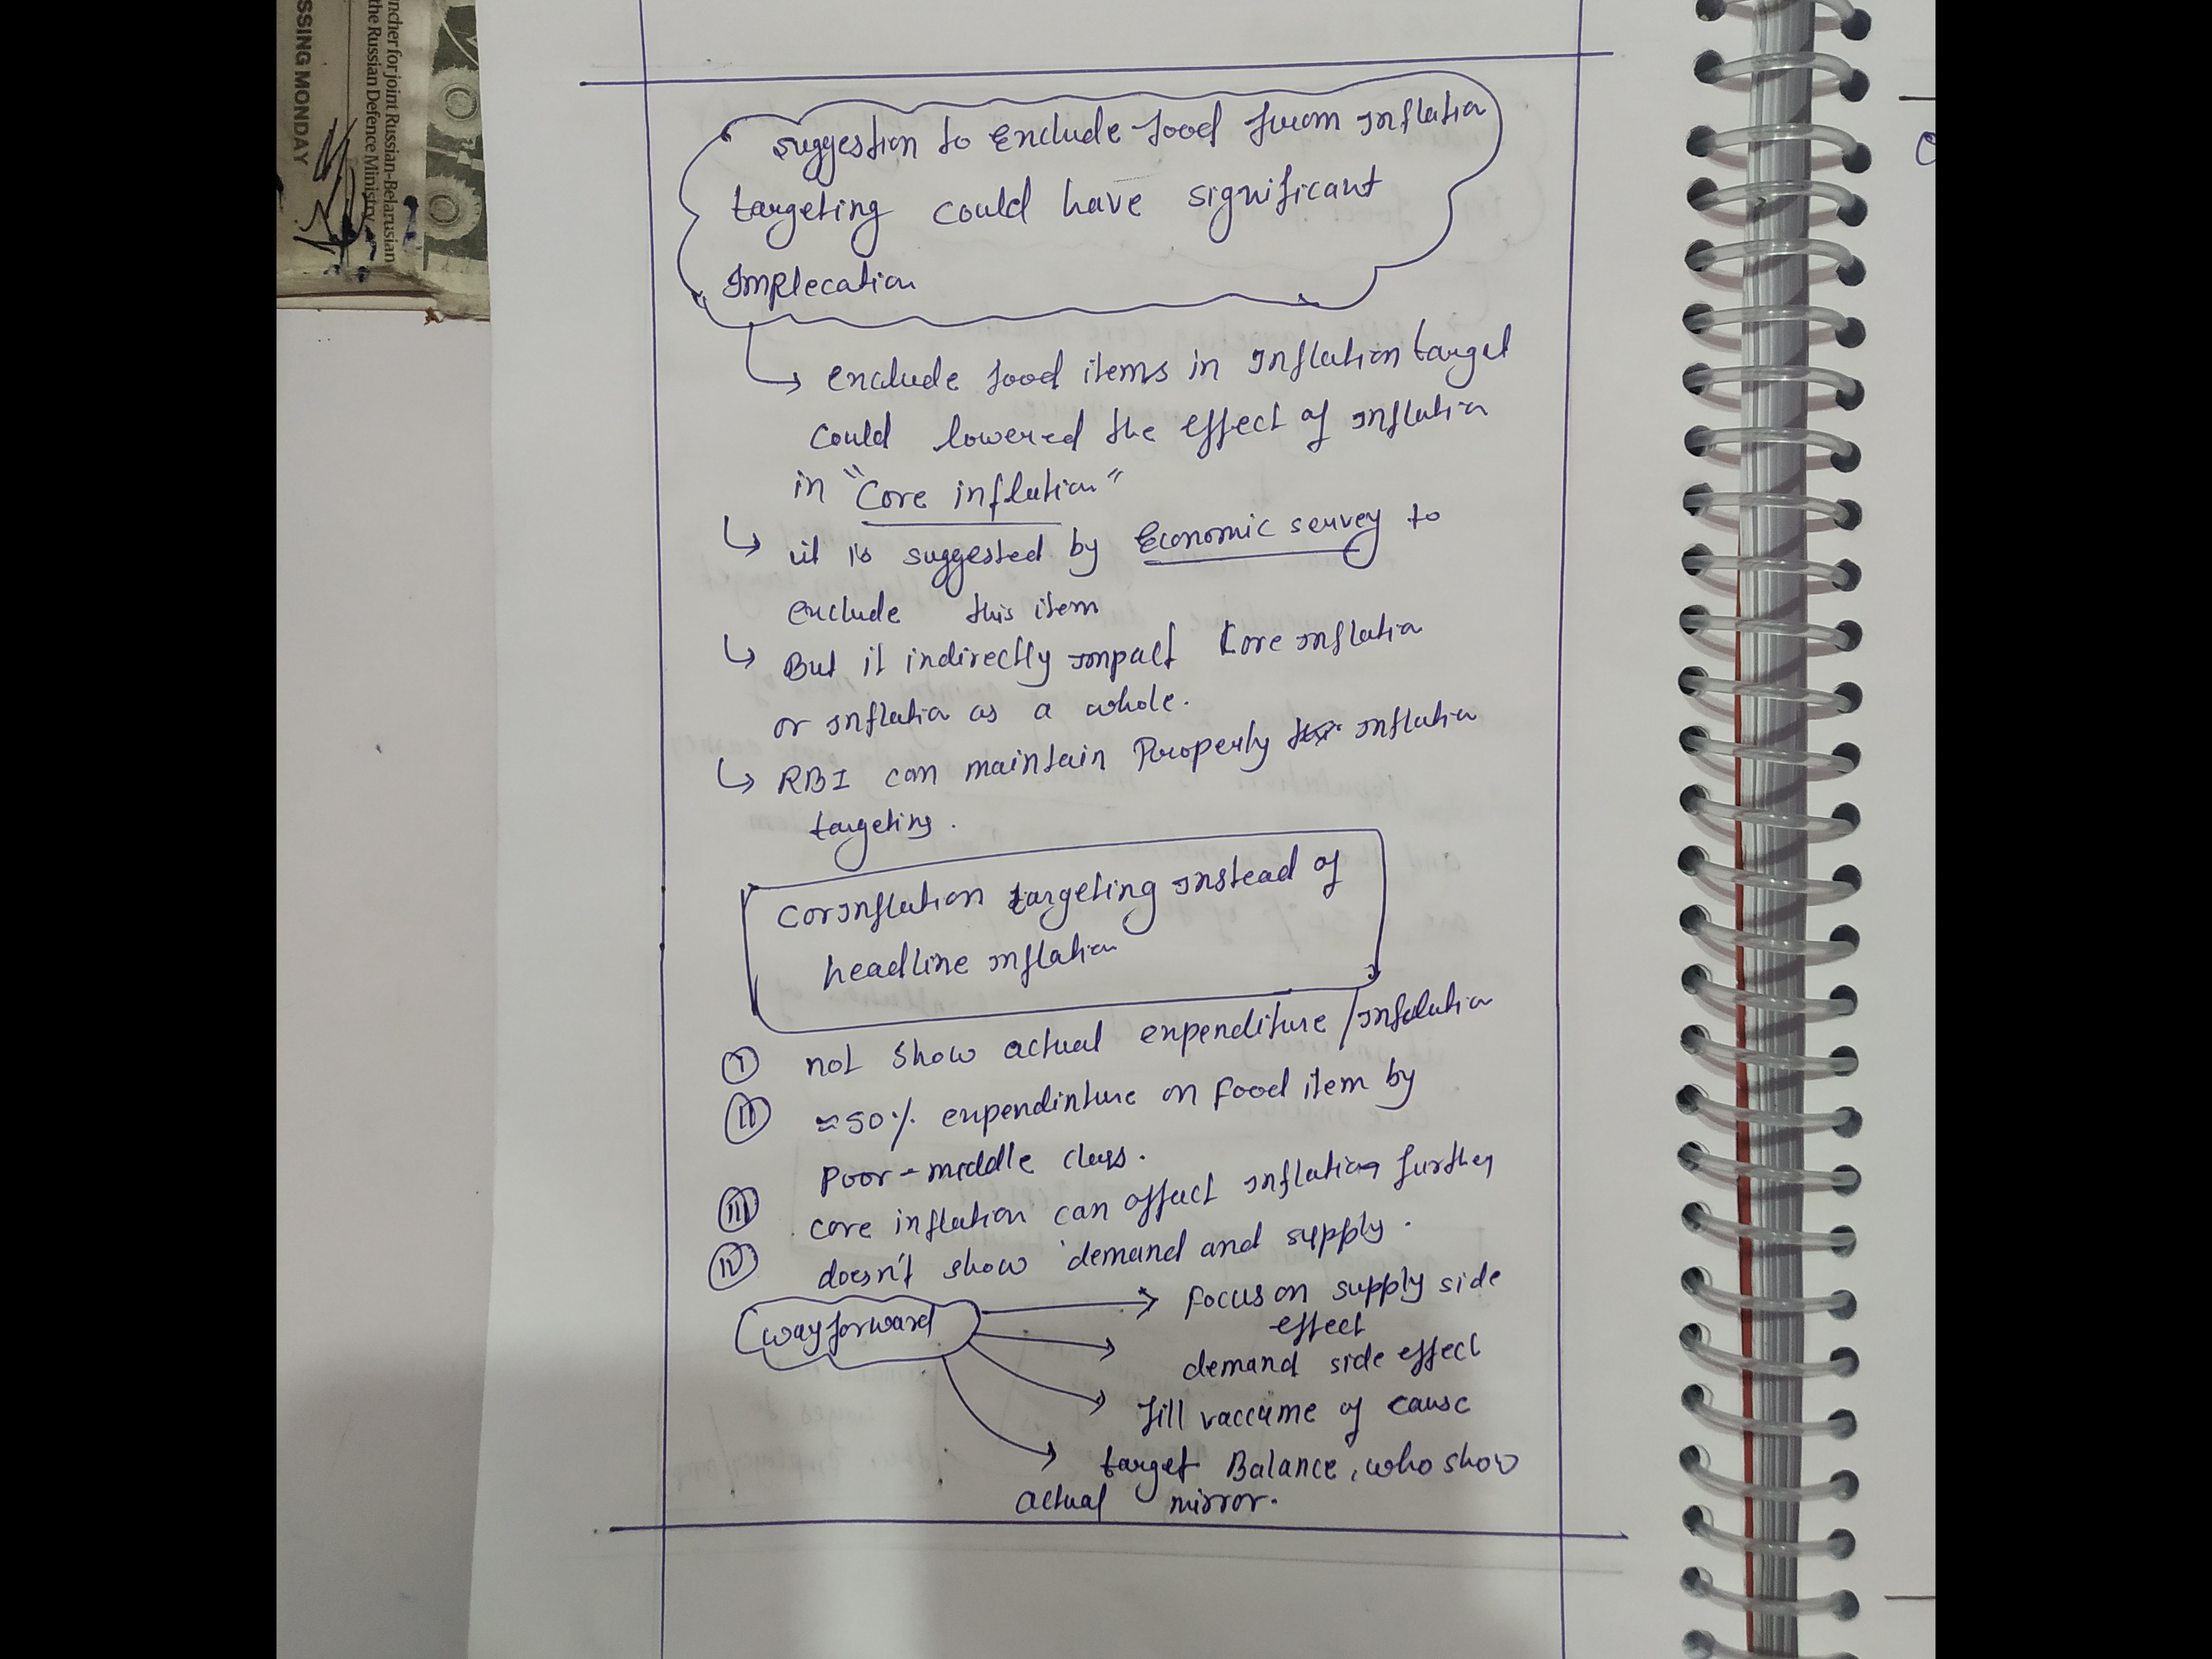 SSING MONDAY
ncher for joint Russian-Belarusian
the Russian Defence Ministry
suggestion to Exclude food from Inflation
targeting could have significant
Implecation
exclude food items in Inflation target
could lowered the effect of Inflation
in "Core inflation"
it is suggested by Economic servey to
exclude this item
But it indirectly impact Core inflation
or inflation as a whole.
RBI can maintain Properly inflation
targeting.
Corinflation targeting instead of
headline inflation
I not show actual expenditure/inflation
II ≈50% expendinture on Food item by
Poor-middle class.
III core inflation can affect inflation further
IV doesn't show demand and supply.
way forward
Focus on supply side
effect
demand side effect
fill vaccume of cause
target Balance, who show
actual mirror.